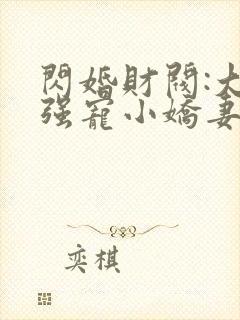 閃婚財閥:大
强寵小嬌妻
奕棋